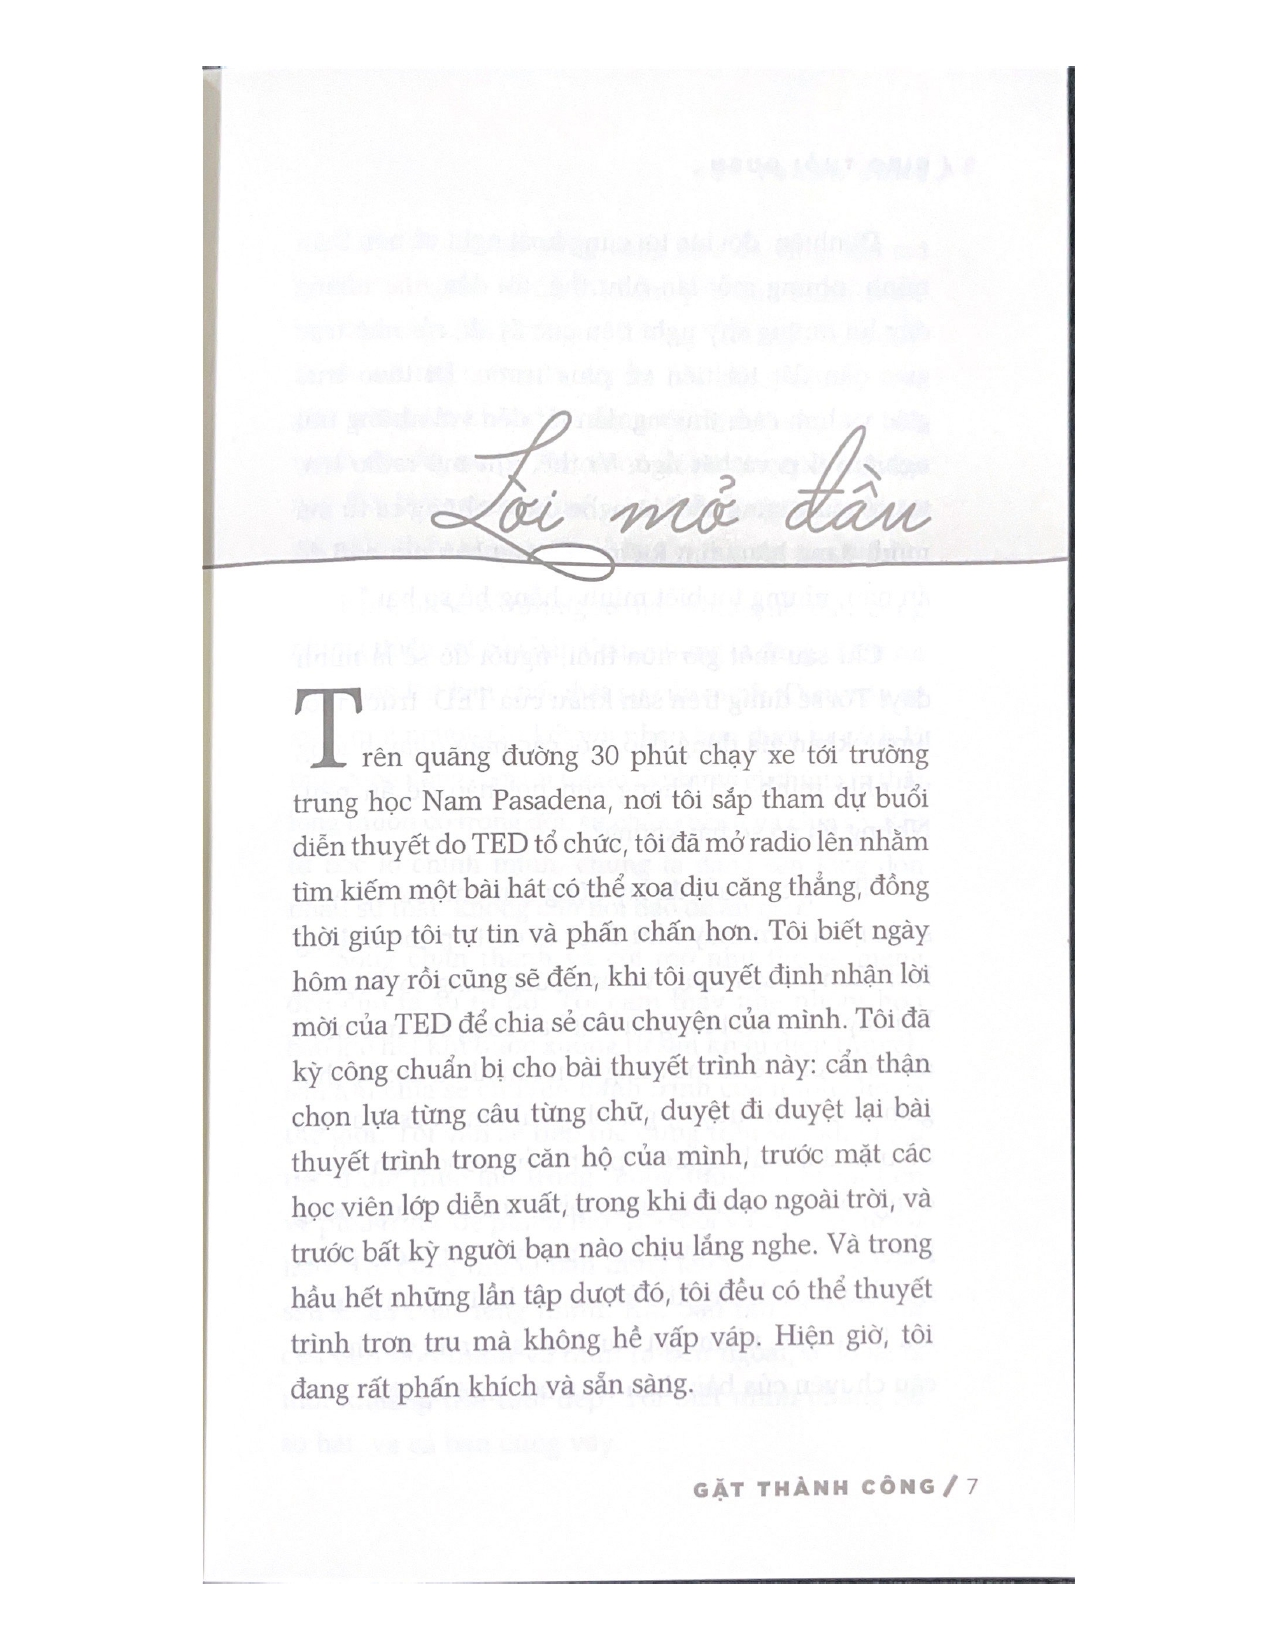 Lời mở đầu
Trên quãng đường 30 phút chạy xe tới trường
trung học Nam Pasadena, nơi tôi sắp tham dự buổi
diễn thuyết do TED tổ chức, tôi đã mở radio lên nhằm
tìm kiếm một bài hát có thể xoa dịu căng thẳng, đồng
thời giúp tôi tự tin và phấn chấn hơn. Tôi biết ngày
hôm nay rồi cũng sẽ đến, khi tôi quyết định nhận lời
mời của TED để chia sẻ câu chuyện của mình. Tôi đã
kỳ công chuẩn bị cho bài thuyết trình này: cẩn thận
chọn lựa từng câu từng chữ, duyệt đi duyệt lại bài
thuyết trình trong căn hộ của mình, trước mặt các
học viên lớp diễn xuất, trong khi đi dạo ngoài trời, và
trước bất kỳ người bạn nào chịu lắng nghe. Và trong
hầu hết những lần tập dượt đó, tôi đều có thể thuyết
trình trơn tru mà không hề vấp váp. Hiện giờ, tôi
đang rất phấn khích và sẵn sàng.
GẶT THÀNH CÔNG / 7